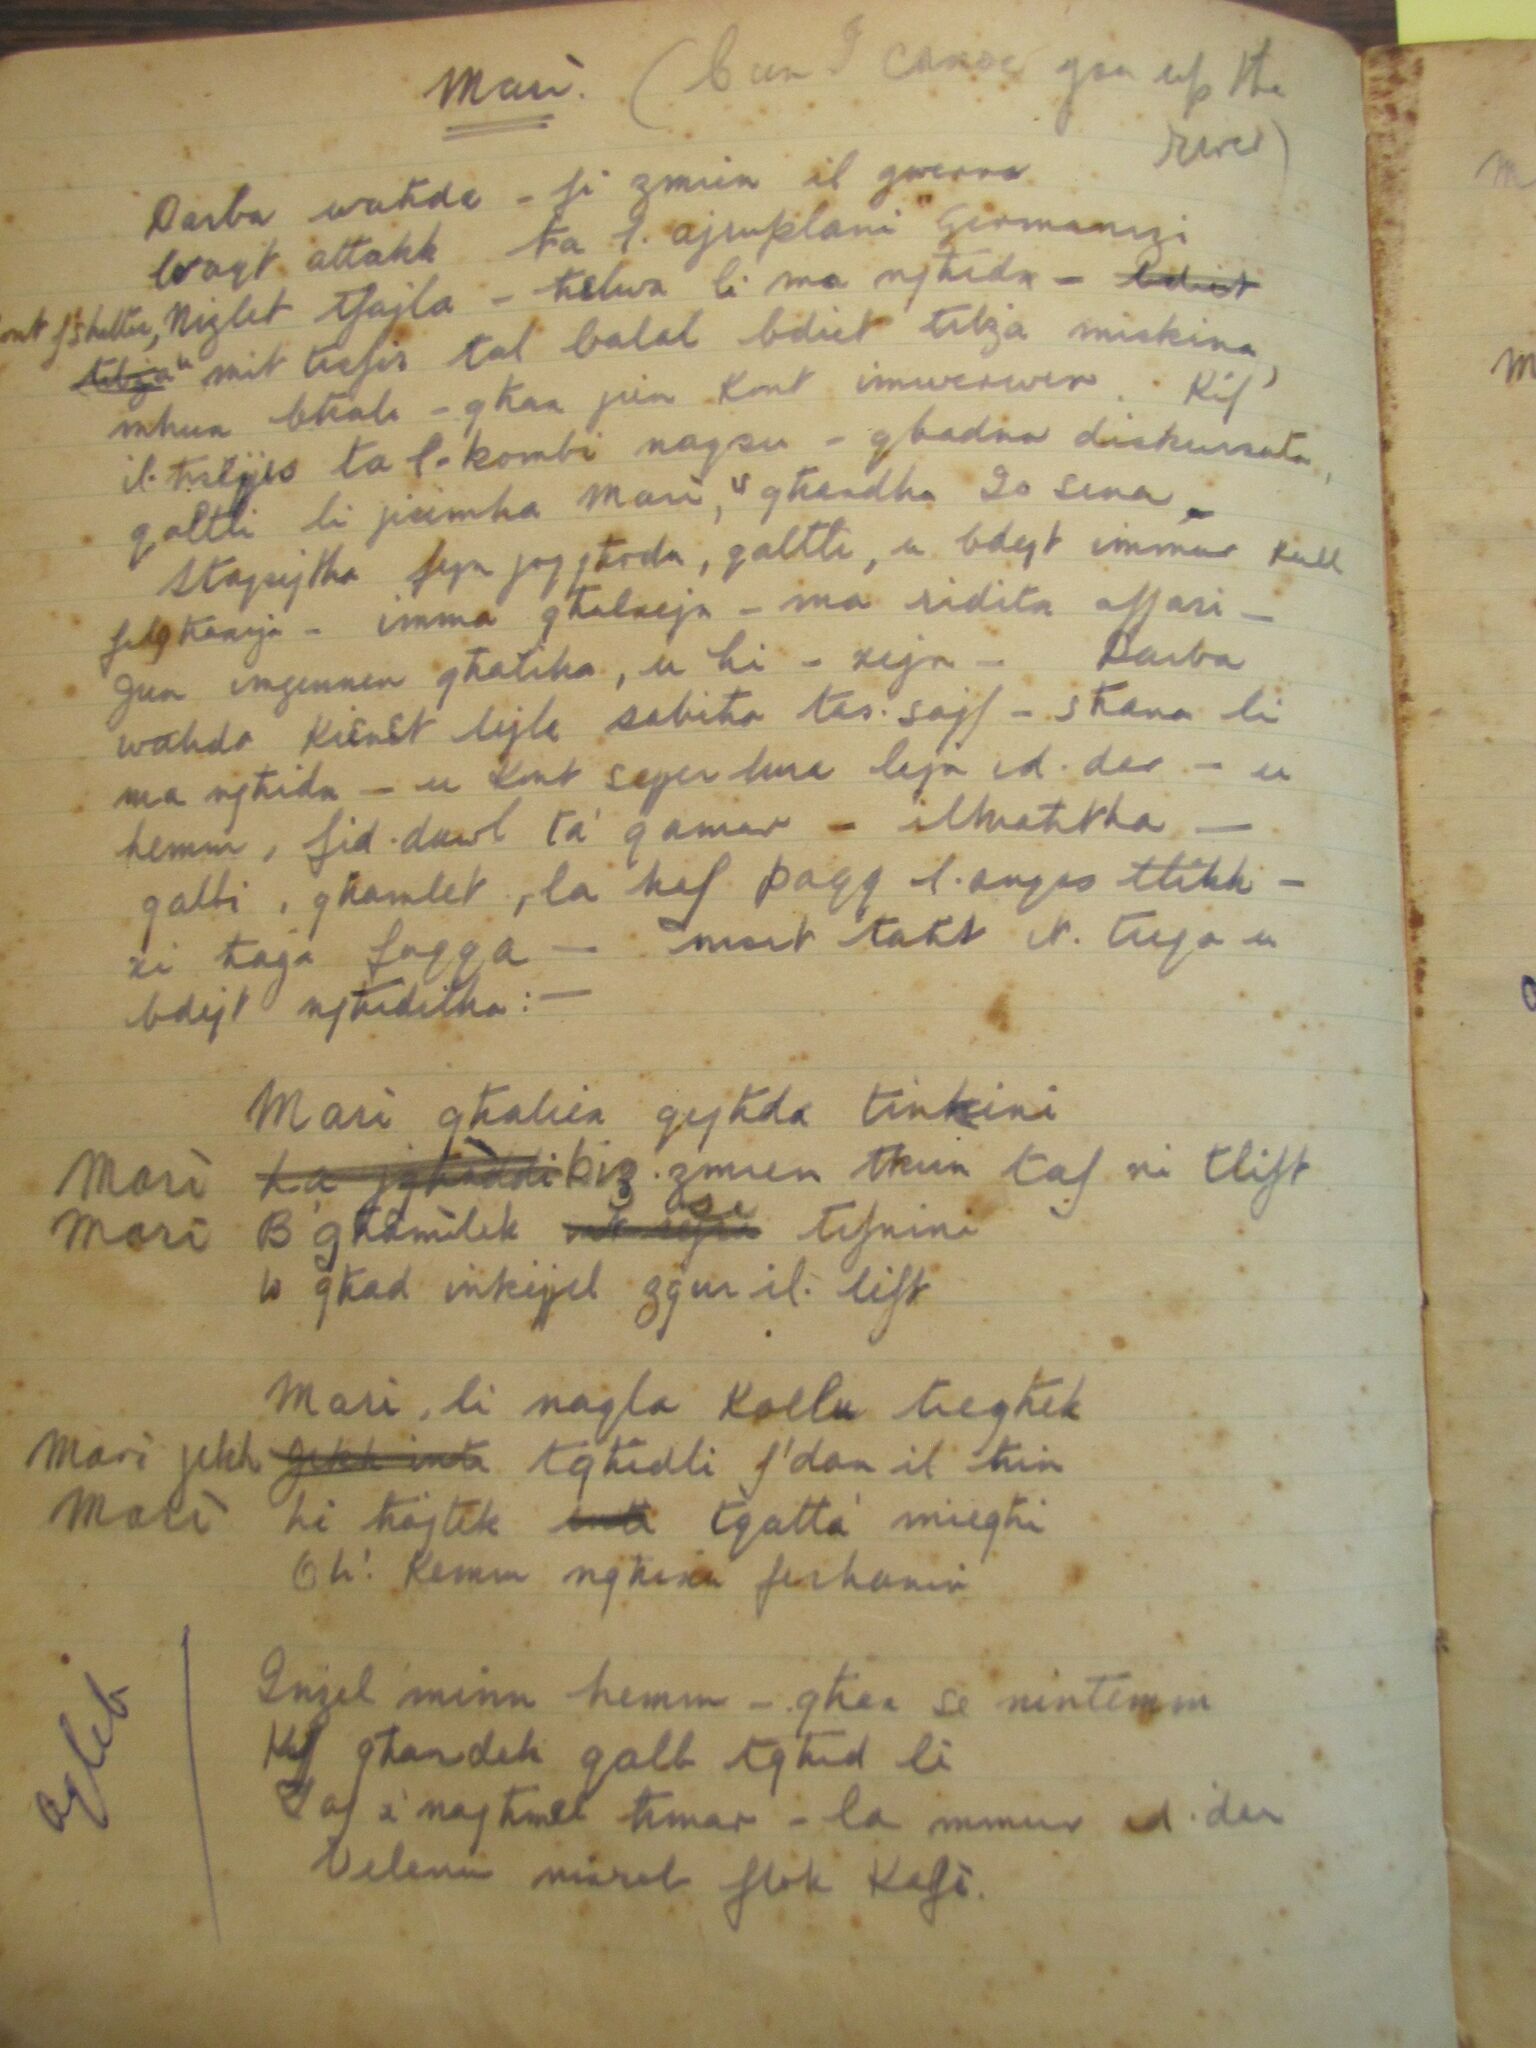 Marì. (Can I canoe you up the
river)
Darba waħda - fi zmien il gwerra
Waqt attakk ta l. ajruplani Germanizi
kont f'Shelter, Nizlet tfajla - ħelwa li ma ngħidx - bdiet
tibża" mit tisfir tal balal bdiet tibża miskina,
mhux bħali - għax jien kont imwerwer. Kif
it-tislijiet ta l-kombi naqsu - qbadna diskursata,
qaltli li jisimha Marì, u għandha 20 sena -
Staqsejtha fejn joqgħodu, qaltli, u bdejt immur kull
filgħaxija - imma għalxejn - ma riditx affari -
Jien imġennen għaliha, u hi - xejn - Darba
waħda kienet lejla sabiħa tas. sajf - sħana li
ma ngħidx - u kont sejjer lura lejn id. dar - u
hemm, fid. dawl ta' qamar - ilmaħtha -
qalbi, għamlet, la ħaf Daqq l. anqas tlikk -
xi ħaġa foqqa - mort taħt it. tieqa u
bdejt ngħidilha: -
Mari għaliex qegħda tinkini
Marì ħa jgħaddi biż. zmien tkun taf xi tlift
Marì B'għamilek se tifnini
u għad inkejjel zgur il. lift
Mari, li naqla kollu tiegħek
Marì jekk jekk inti tgħidli f'dan il ħin
Marì li ħajtek inti tgħatta' miegħi
Oh! Kemm ngħixu ferħanin
Inzel minn hemm - għax se nintemm
Kif għandek qalb tgħid li
Taf x' nagħmel ħmar - la mmur id. dar
Velenu nixrob flok kafè.
Aqleb